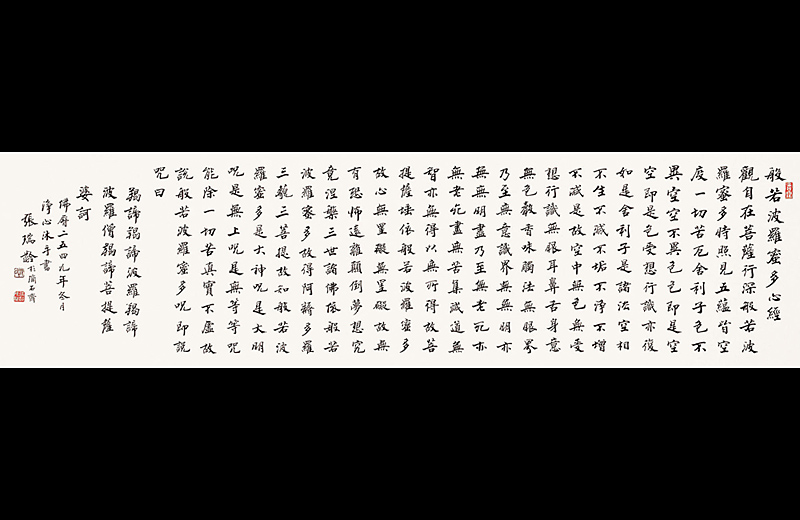 般若波羅蜜多心經
觀自在菩薩行深般若波
羅蜜多時照見五蘊皆空
度一切苦厄舍利子色不
異空空不異色色即是空
空即是色受想行識亦復
如是舍利子是諸法空相
不生不滅不垢不淨不增
不減是故空中無色無受
想行識無眼耳鼻舌身意
無色聲香味觸法無眼界
乃至無意識界無無明亦
無無明盡乃至無老死亦
無老死盡無苦集滅道無
智亦無得以無所得故菩
提薩埵依般若波羅蜜多
故心無罣礙無罣礙故無
有恐怖遠離顛倒夢想究
竟涅槃三世諸佛依般若
波羅蜜多故得阿耨多羅
三藐三菩提故知般若波
羅蜜多是大神呪是大明
呪是無上呪是無等等呪
能除一切苦真實不虛故
說般若波羅蜜多呪即說
呪曰
羯諦羯諦波羅羯諦
波羅僧羯諦菩提薩
婆訶
佛曆二五四九年冬月
淨心沐手書
張瑞齡於蘭石齋